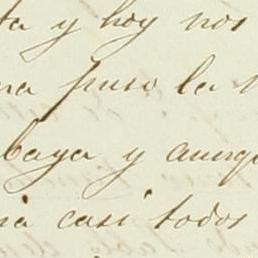 ta y hoy nos
na puso la
baya y aunq
nia casi todos